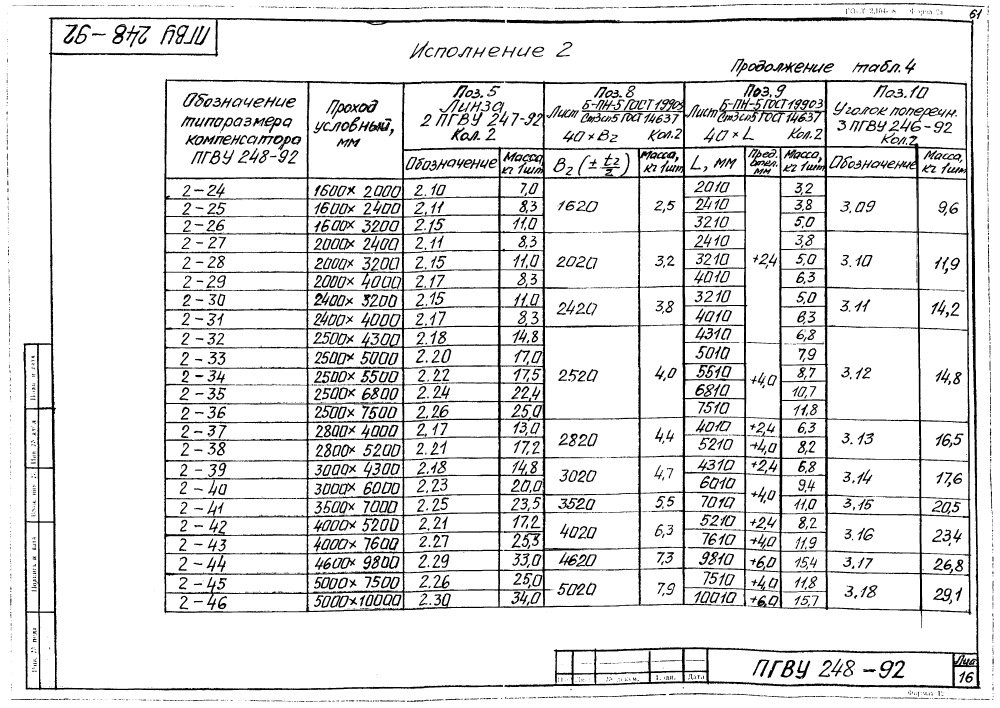 61
ПГВУ 248-92
Исполнение 2
Продолжение табл. 4
Обозначение типоразмера компенсатора ПГВУ 248-92
Проход условный, мм
Поз. 5 Линза 2 ПГВУ 247-92 Кол. 2
Поз. 8 Лист Б-ПН-5 ГОСТ 19903 Ст3сп5 ГОСТ 14637 40×B₂ Кол. 2
Поз. 9 Лист Б-ПН-5 ГОСТ 19903 Ст3сп5 ГОСТ 14637 40×L Кол. 2
Поз. 10 Уголок поперечн. 3 ПГВУ 246-92 Кол. 2
Обозначение Масса, кг 1шт B₂ (± t₂/2) Масса, кг 1шт L, мм Пред. откл. мм Масса, кг 1шт Обозначение Масса, кг 1шт
2-24 1600×2000 2.10 7,0 1620 2,5 2010 +2,4 3,2 3.09 9,6
2-25 1600×2400 2.11 8,3 2410 3,8
2-26 1600×3200 2.15 11,0 3210 5,0
2-27 2000×2400 2.11 8,3 2020 3,2 2410 3,8 3.10 11,9
2-28 2000×3200 2.15 11,0 3210 5,0
2-29 2000×4000 2.17 8,3 4010 6,3
2-30 2400×3200 2.15 11,0 2420 3,8 3210 5,0 3.11 14,2
2-31 2400×4000 2.17 8,3 4010 6,3
2-32 2500×4300 2.18 14,8 2520 4,0 4310 6,8 3.12 14,8
2-33 2500×5000 2.20 17,0 5010 +4,0 7,9
2-34 2500×5500 2.22 17,5 5510 8,7
2-35 2500×6800 2.24 22,4 6810 10,7
2-36 2500×7500 2.26 25,0 7510 11,8
2-37 2800×4000 2.17 13,0 2820 4,4 4010 +2,4 6,3 3.13 16,5
2-38 2800×5200 2.21 17,2 5210 +4,0 8,2
2-39 3000×4300 2.18 14,8 3020 4,7 4310 +2,4 6,8 3.14 17,6
2-40 3000×6000 2.23 20,0 6010 +4,0 9,4
2-41 3500×7000 2.25 23,5 3520 5,5 7010 11,0 3.15 20,5
2-42 4000×5200 2.21 17,2 4020 6,3 5210 +2,4 8,2 3.16 23,4
2-43 4000×7600 2.27 25,3 7610 +4,0 11,9
2-44 4600×9800 2.29 33,0 4620 7,3 9810 +6,0 15,4 3.17 26,8
2-45 5000×7500 2.26 25,0 5020 7,9 7510 +4,0 11,8 3.18 29,1
2-46 5000×10000 2.30 34,0 10010 +6,0 15,7
Дата
ПГВУ 248-92
Лист
16